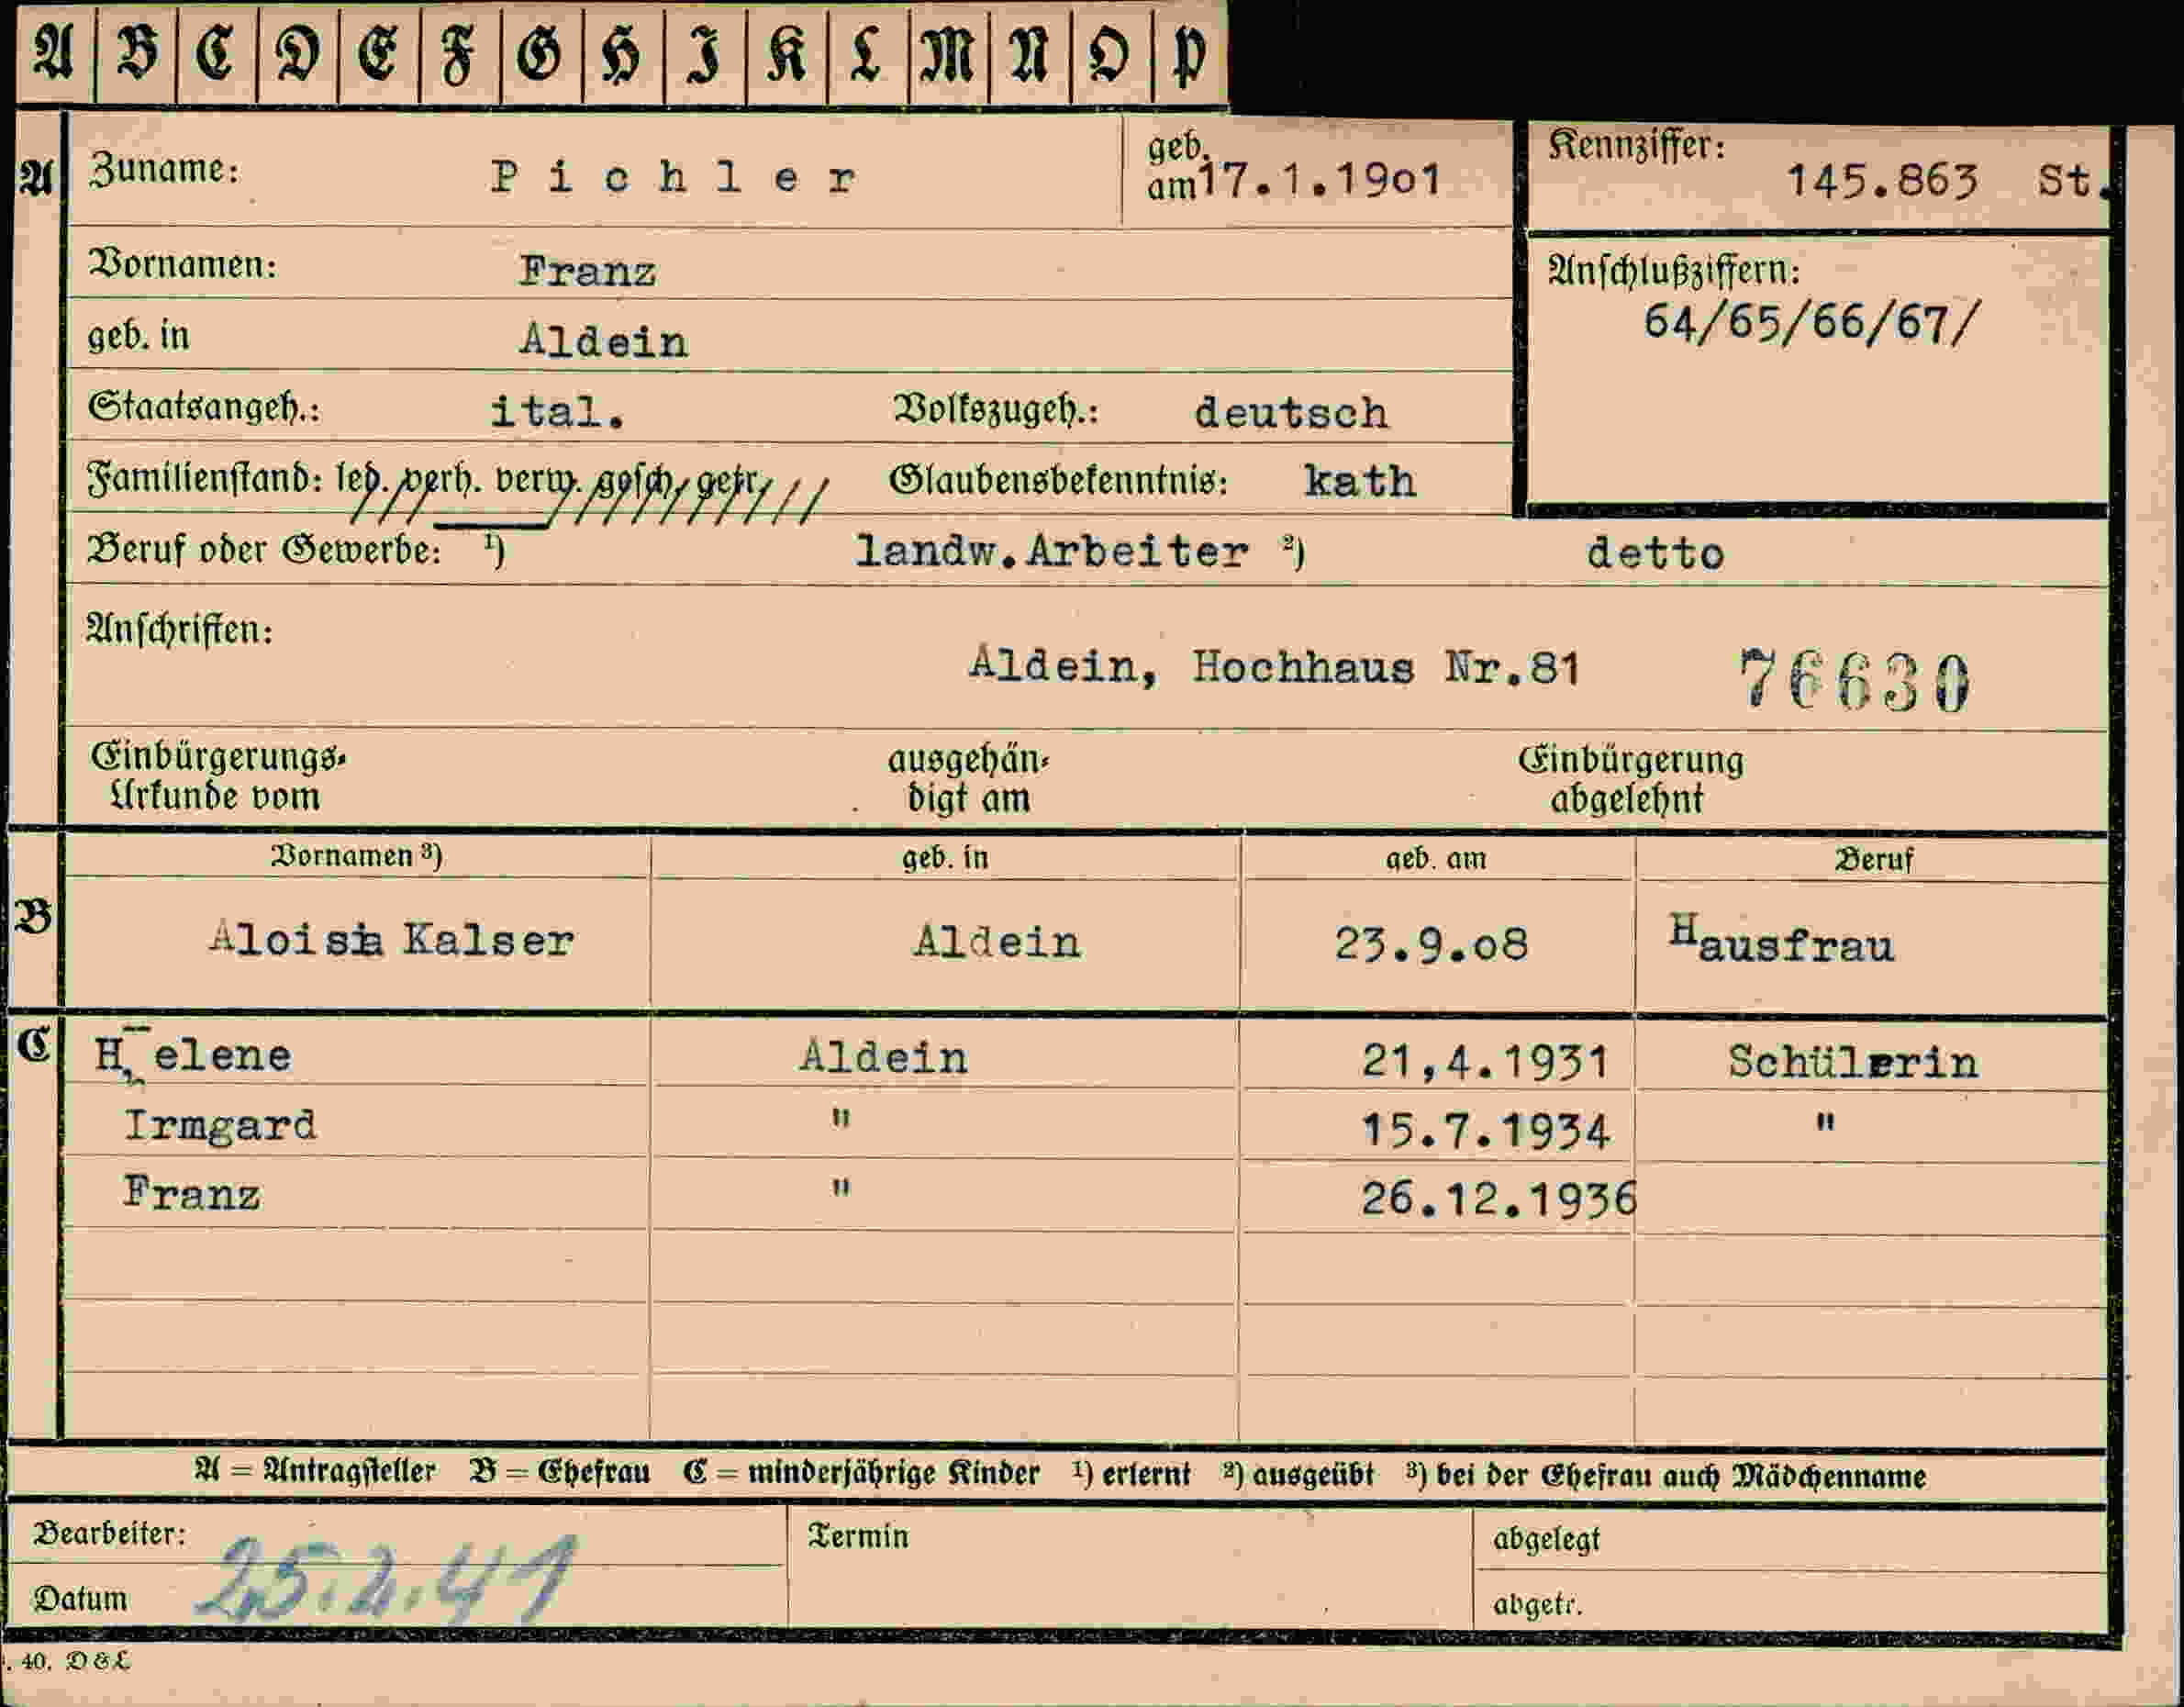 A B C D E F G H I K L M N O P
A Zuname: Pichler geb. am 17.1.19o1 Kennziffer: 145.863 St.
Vornamen: Franz Anschlußziffern:
64/65/66/67/
geb. in Aldein
Staatsangeh.: ital. Volkszugeh.: deutsch
Familienstand: led. verh. verw. gesch. getr. Glaubensbekenntnis: kath
Beruf oder Gewerbe: ¹) landw.Arbeiter ²) detto
Anschriften:
Aldein, Hochhaus Nr.81 76630
Einbürgerungs- ausgehän- Einbürgerung
Urkunde vom digt am abgelehnt
Vornamen ³) geb. in geb. am Beruf
B Aloisia Kalser Aldein 23.9.o8 Hausfrau
C Helene Aldein 21,4.1931 Schülerin
Irmgard " 15.7.1934 "
Franz " 26.12.1936
A = Antragsteller B = Ehefrau C = minderjährige Kinder ¹) erlernt ²) ausgeübt ³) bei der Ehefrau auch Mädchenname
Bearbeiter: Termin abgelegt
Datum 25.2.41 abgetr.
. 40. D & L